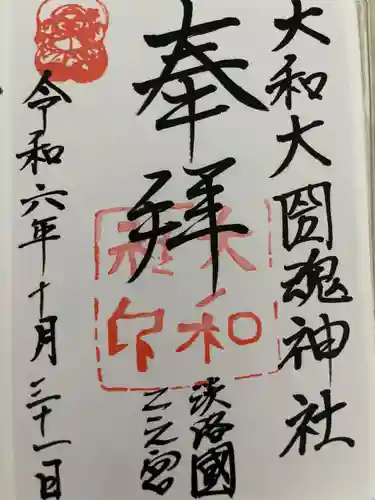 大和大圀魂神社
奉拝
淡路國
二之宮
大和
社印
令和六年十月三十一日